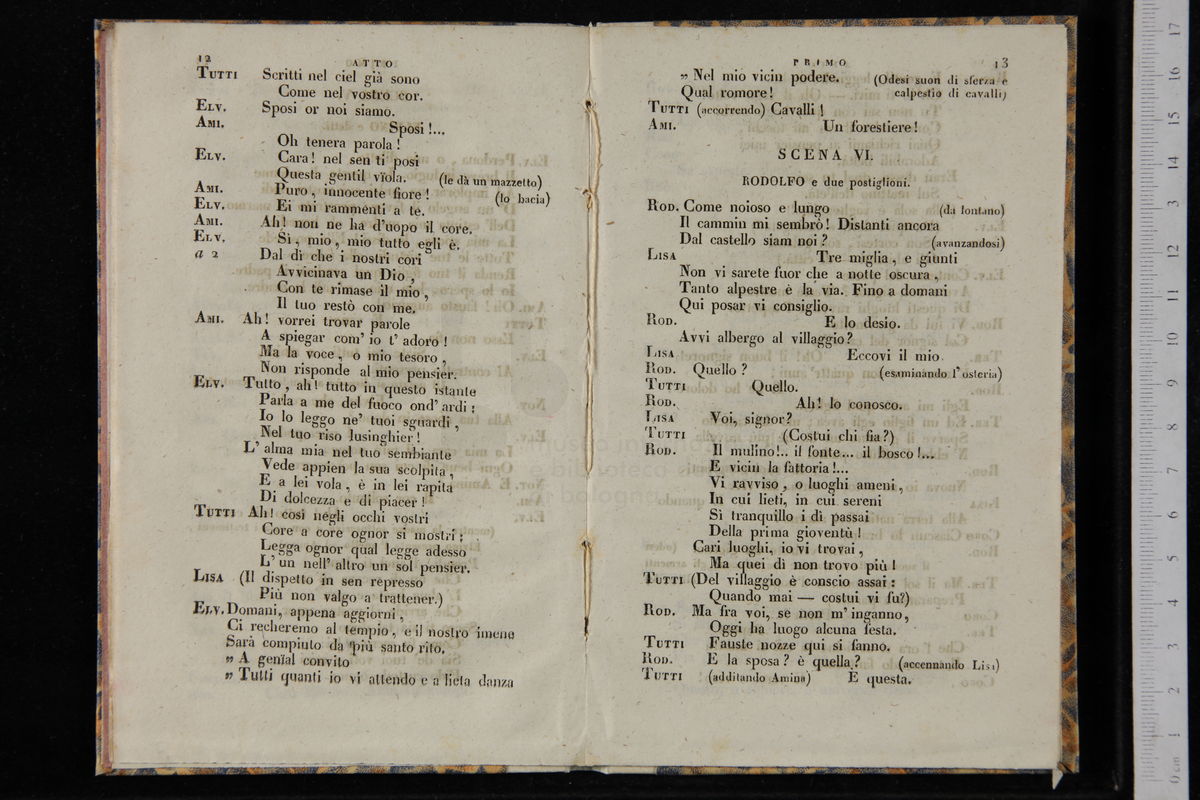 12
ATTO
TUTTI Scritti nel ciel già sono
Come nel vostro cor.
ELV. Sposi or noi siamo.
AMI. Sposi!...
Oh tenera parola!
ELV. Cara! nel sen ti posi
Questa gentil vïola. (le dà un mazzetto)
AMI. Puro, innocente fiore! (lo bacia)
ELV. Ei mi rammenti a te.
AMI. Ah! non ne ha d'uopo il core.
ELV. Sì, mio, mio tutto egli è.
a 2 Dal dì che i nostri cori
Avvicinava un Dio,
Con te rimase il mio,
Il tuo restò con me.
AMI. Ah! vorrei trovar parole
A spiegar com' io t' adoro!
Ma la voce, o mio tesoro,
Non risponde al mio pensier.
ELV. Tutto, ah! tutto in questo istante
Parla a me del fuoco ond' ardi:
Io lo leggo ne' tuoi sguardi,
Nel tuo riso lusinghier!
L' alma mia nel tuo sembiante
Vede appien la sua scolpita,
E a lei vola, è in lei rapita
Di dolcezza e di piacer!
TUTTI Ah! così negli occhi vostri
Core a core ognor si mostri:
Legga ognor qual legge adesso
L' un nell' altro un sol pensier.
LISA (Il dispetto in sen represso
Più non valgo a trattener.)
ELV. Domani, appena aggiorni,
Ci recheremo al tempio, e il nostro imene
Sarà compiuto da più santo rito.
„ A genïal convito
„ Tutti quanti io vi attendo e a lieta danza
PRIMO
13
„ Nel mio vicin podere. (Odesi suon di sferza e
Qual romore! calpestio di cavalli)
TUTTI (accorrendo) Cavalli!
AMI. Un forestiere!
SCENA VI.
RODOLFO e due postiglioni.
ROD. Come noioso e lungo (da lontano)
Il cammin mi sembrò! Distanti ancora
Dal castello siam noi? (avanzandosi)
LISA Tre miglia, e giunti
Non vi sarete fuor che a notte oscura,
Tanto alpestre è la via. Fino a domani
Qui posar vi consiglio.
ROD. E lo desio.
Avvi albergo al villaggio?
LISA Eccovi il mio.
ROD. Quello? (esaminando l' osteria)
TUTTI Quello.
ROD. Ah! lo conosco.
LISA Voi, signor?
TUTTI (Costui chi fia?)
ROD. Il mulino!.. il fonte... il bosco!...
E vicin la fattoria!...
Vi ravviso, o luoghi ameni,
In cui lieti, in cui sereni
Sì tranquillo i dì passai
Della prima gioventù!
Cari luoghi, io vi trovai,
Ma quei dì non trovo più!
TUTTI (Del villaggio è conscio assai:
Quando mai — costui vi fu?)
ROD. Ma fra voi, se non m' inganno,
Oggi ha luogo alcuna festa.
TUTTI Fauste nozze qui si fanno.
ROD. E la sposa? è quella? (accennando LISA)
TUTTI (additando Amina) È questa.